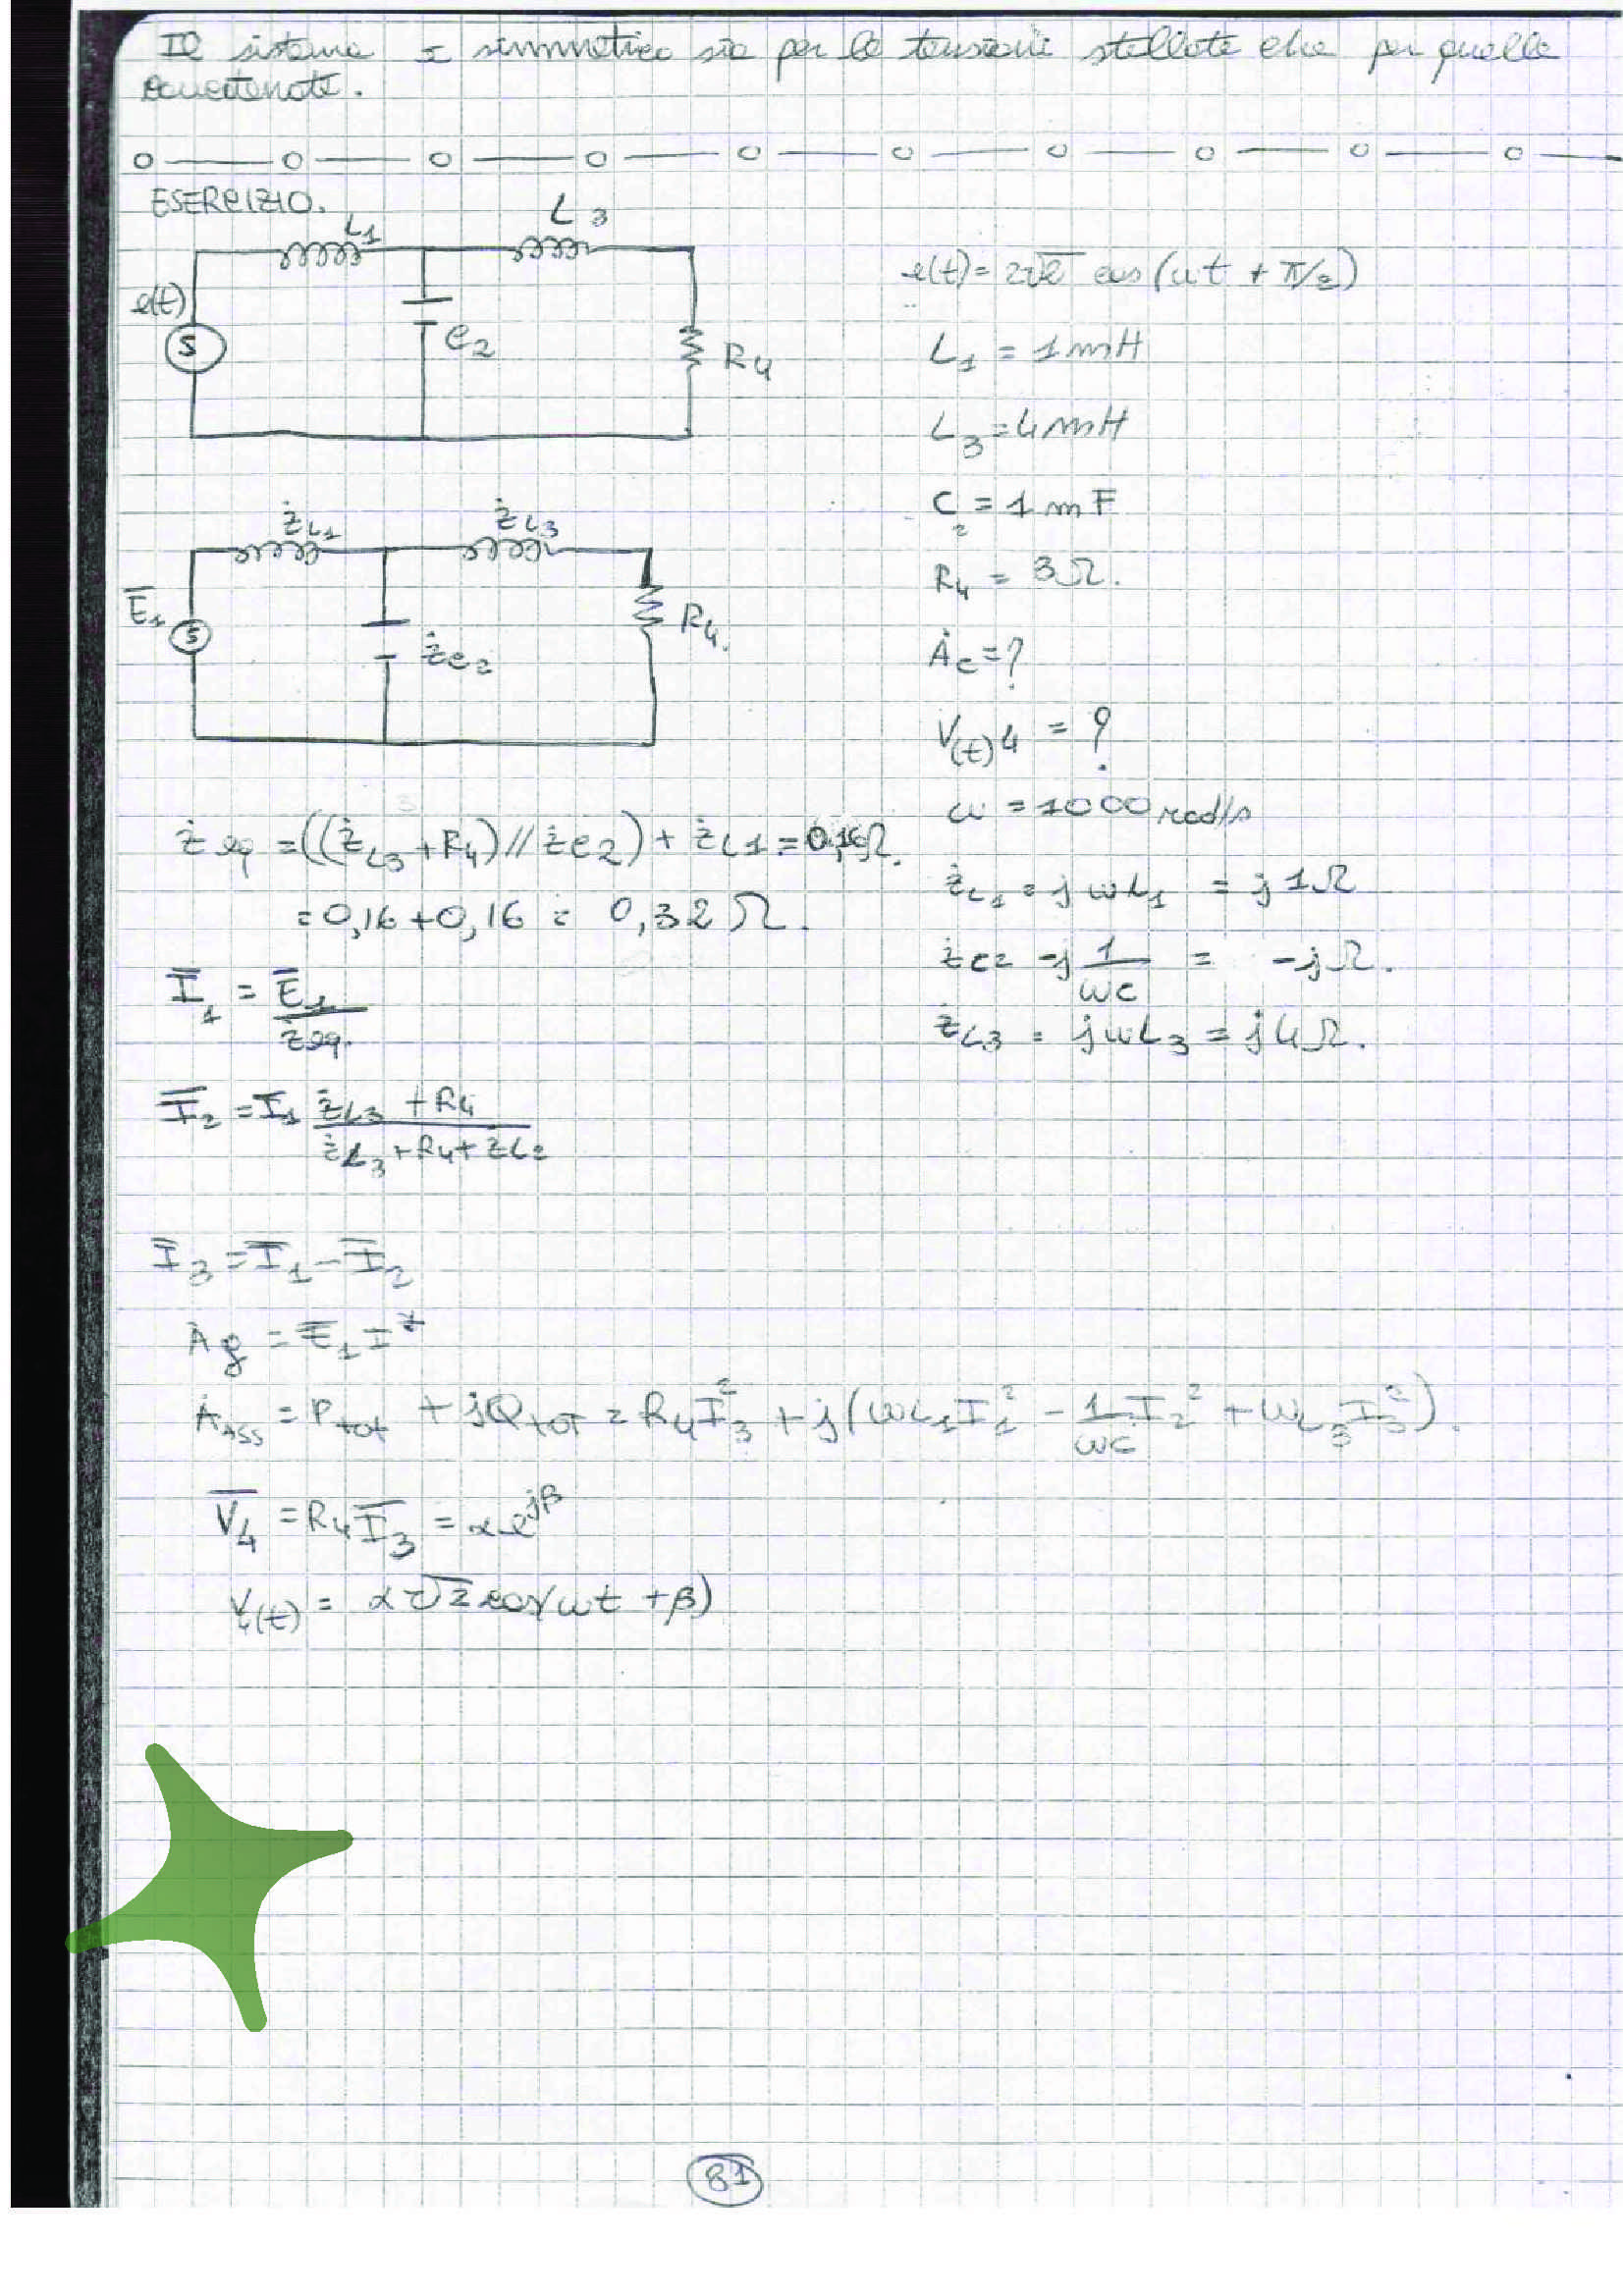 Il sistema è simmetrico sia per le tensioni stellate che per quelle
concatenate.
ESERCIZIO.
L1
L3
e(t)
S
C2
R4
e(t) = 2√2 cos(ωt + π/2)
L1 = 1mH
L3 = 4mH
C2 = 1mF
R4 = 3Ω.
Ȧc = ?
V(t)4 = ?
ω = 1000 rad/s
żL1
żL3
Ē1
S
żc2
R4.
żeq = ((żL3 + R4) // żc2) + żL1 = 0,16Ω.
= 0,16 + 0,16 = 0,32 Ω.
żL1 = jωL1 = j1Ω
żc2 -j 1/ωC = -jΩ.
żL3 = jωL3 = j4Ω.
Ī1 = Ē1/żeq.
Ī2 = Ī1 żL3 + R4/żL3 + R4 + żL2
Ī3 = Ī1 - Ī2
Ȧg = Ē1 I*
ȦASS = Ptot + jQTOT = R4 I3² + j(ωL1 I1² - 1/ωC I2² + ωL3 I3²).
V̄4 = R4 Ī3 = α e^jβ
V4(t) = α√2 cos(ωt + β)
81